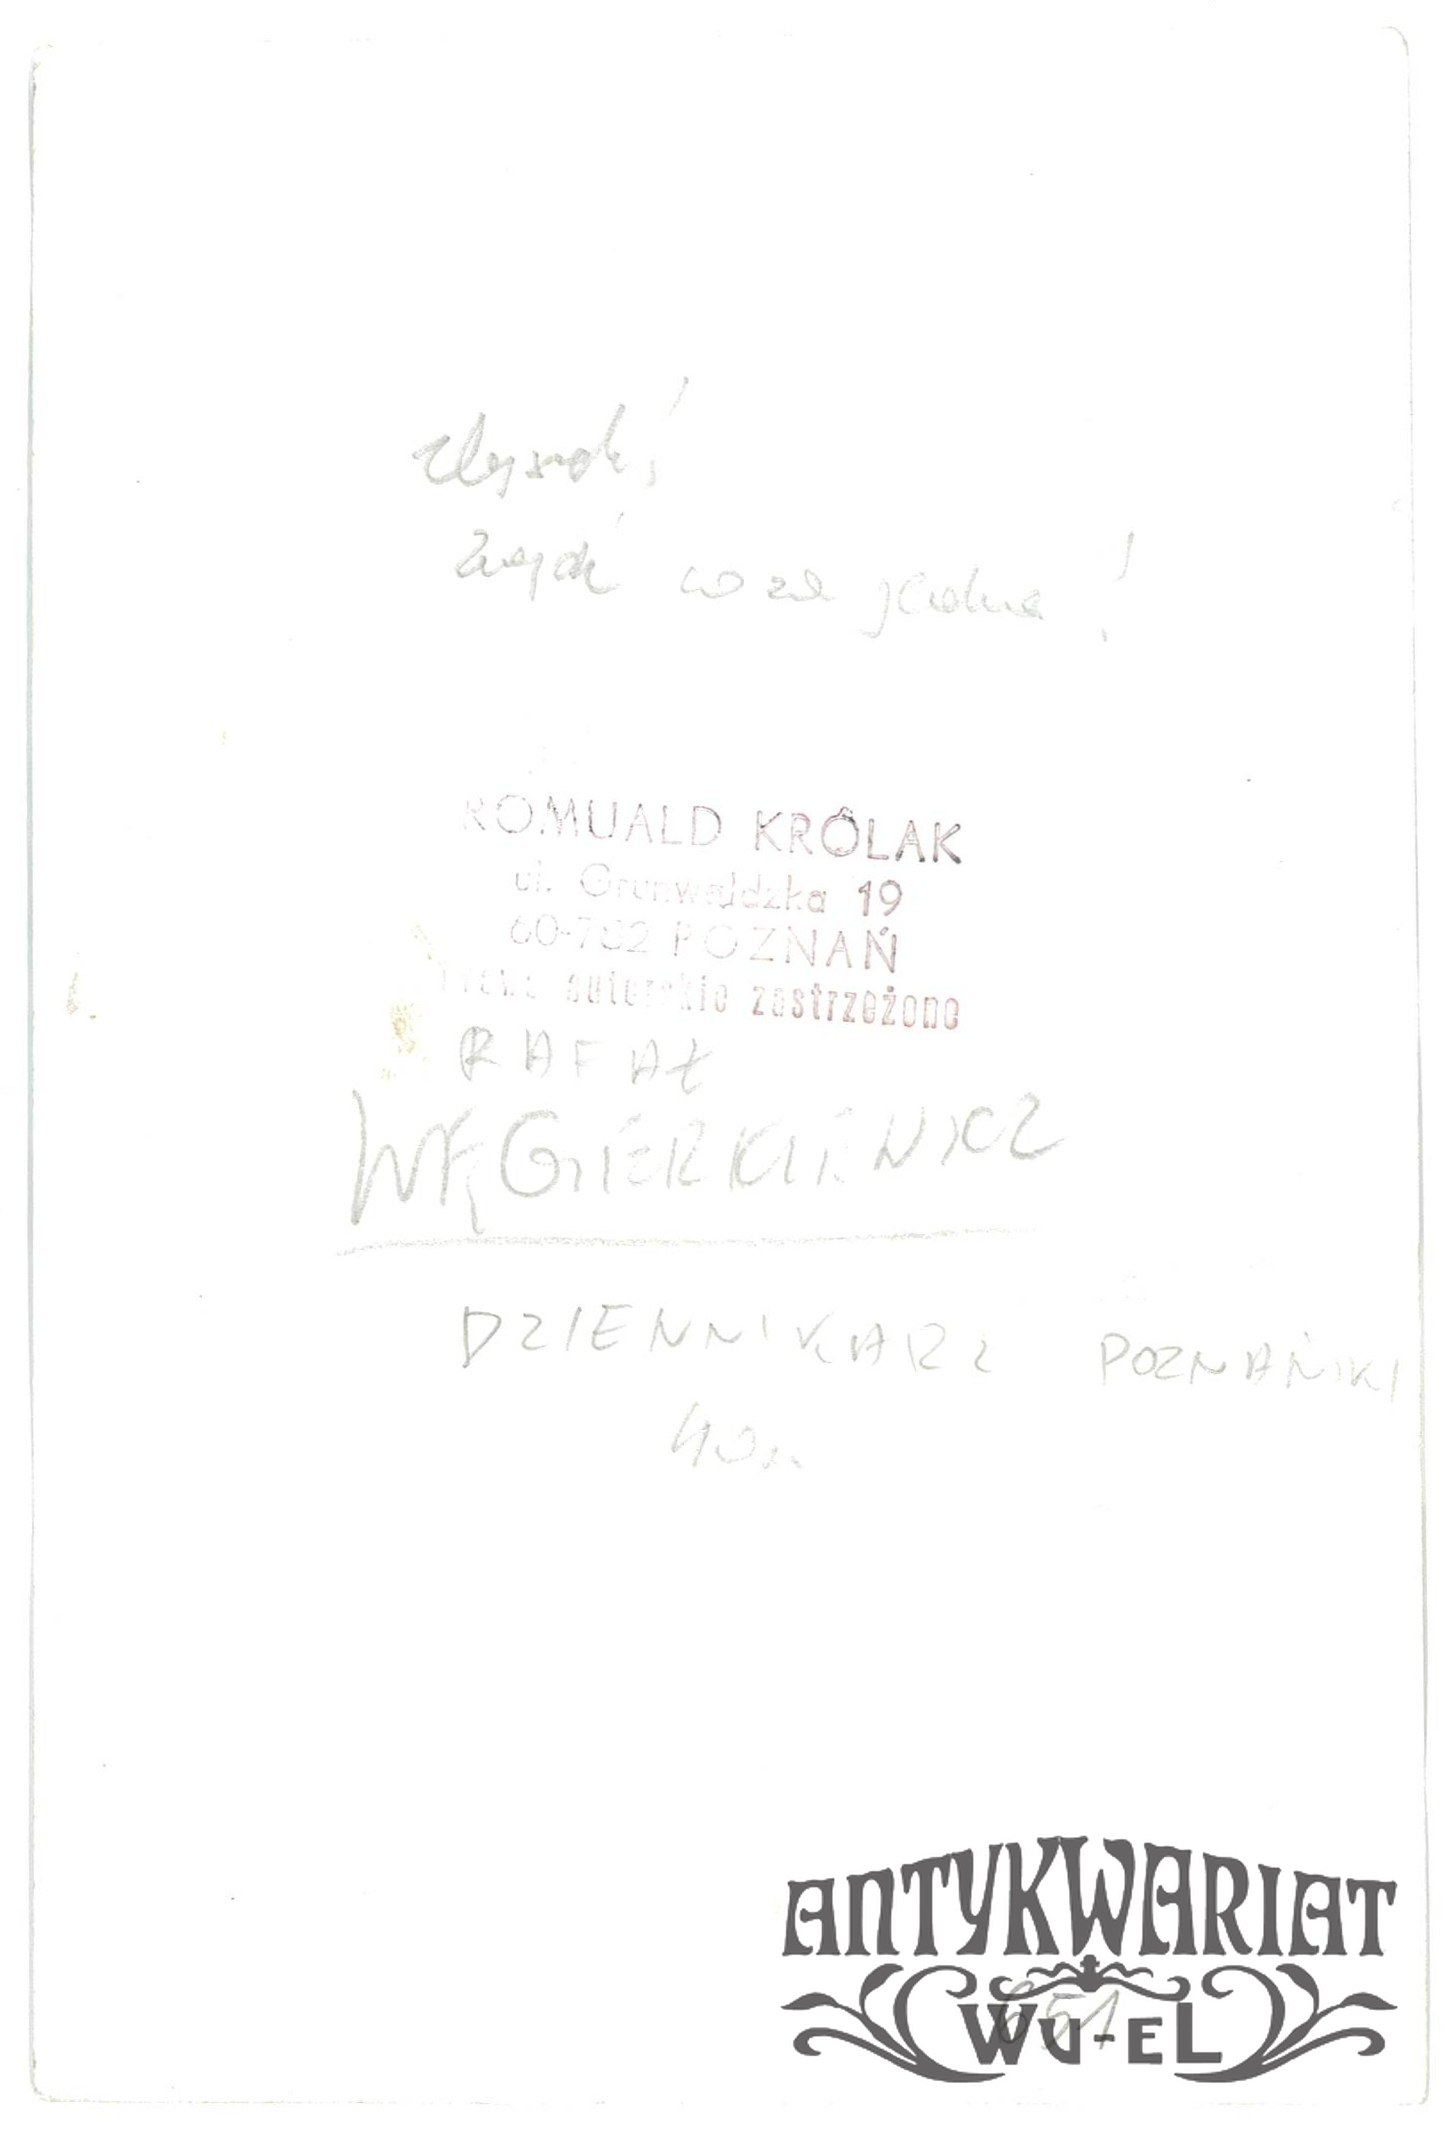 co za jedna!
ROMUALD KRÓLAK
ul. Grunwaldzka 19
60-782 POZNAŃ
Prawa autorskie zastrzeżone
RAFAŁ
WĘGIERKIEWICZ
DZIENNIKARZ POZNAŃSKI
651
ANTYKWARIAT
WU-EL